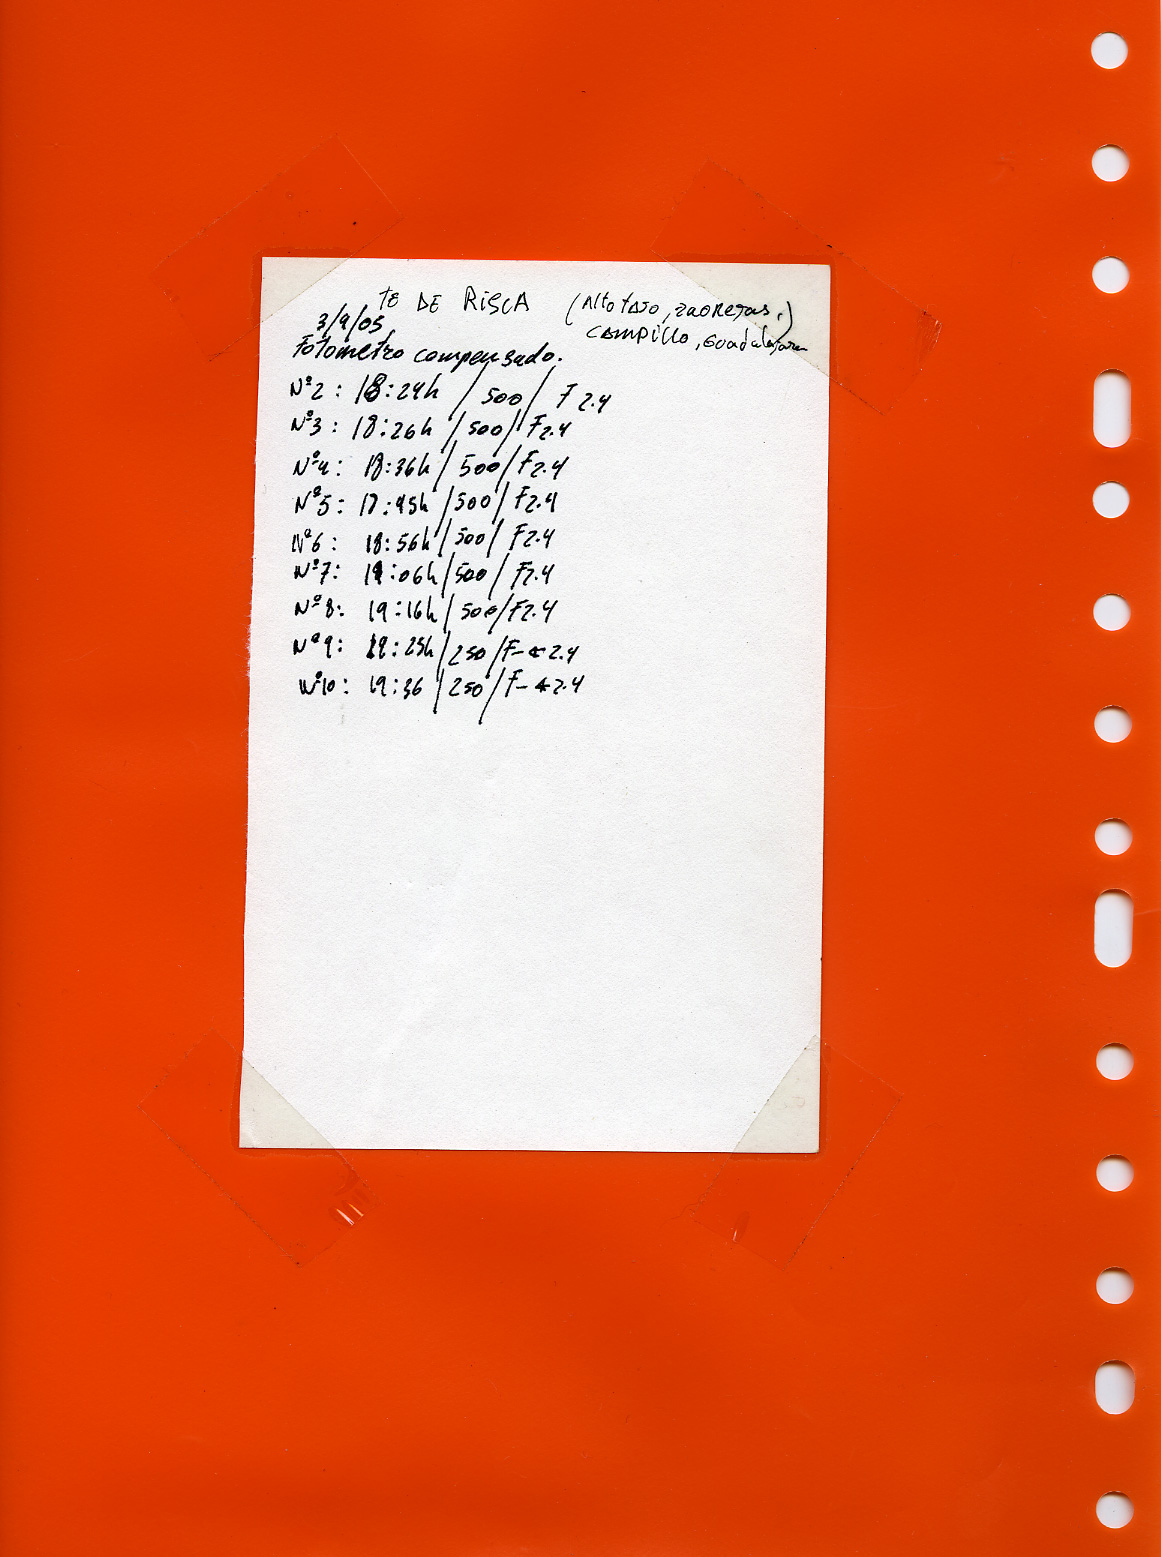 TE DE RISCA (Alto tajo, zaorejas,)
3/9/05 CAMPILLO, Guadalajara
Fotometro compensado.
Nº2: 18:24h / 500 / F 2.4
Nº3: 18:26h / 500 / F2.4
Nº4: 18:36h / 500 / F2.4
Nº5: :45h / 500 / F2.4
Nº6: 18:56h / 500 / F2.4
Nº7: 19:06h / 500 / F2.4
Nº8: 19:16h / 500 / F2.4
Nº9: 19:25h / 250 / F- ← 2.4
Nº10: 19:36 / 250 / F- ← 2.4